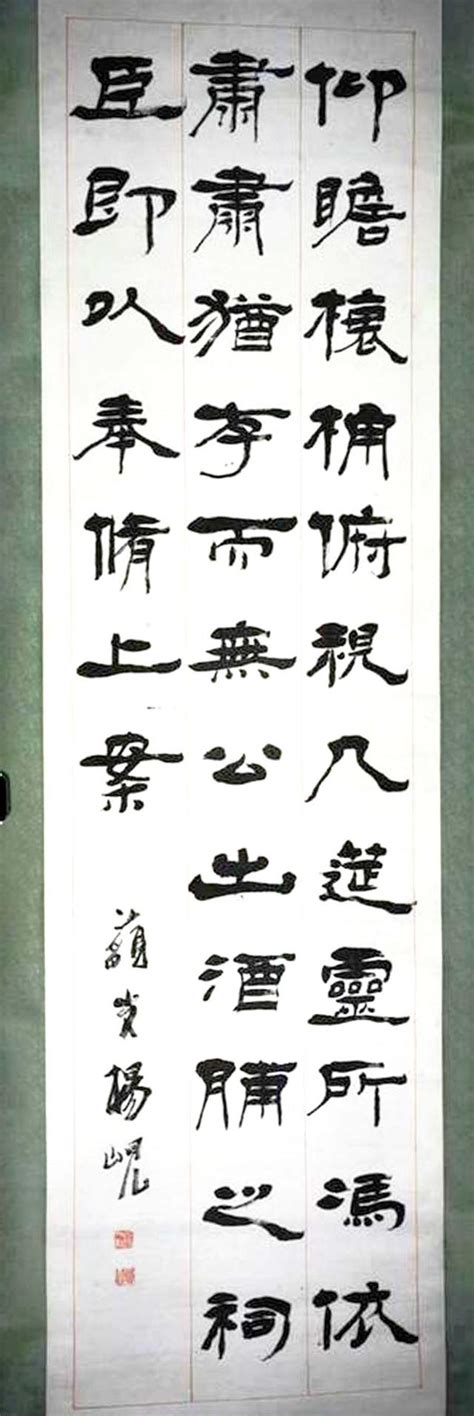 仰瞻榱桷俯視几筵靈所馮依
肅肅猶存而無公出酒脯之祠
臣即以奉脩上案
藐叟楊峴